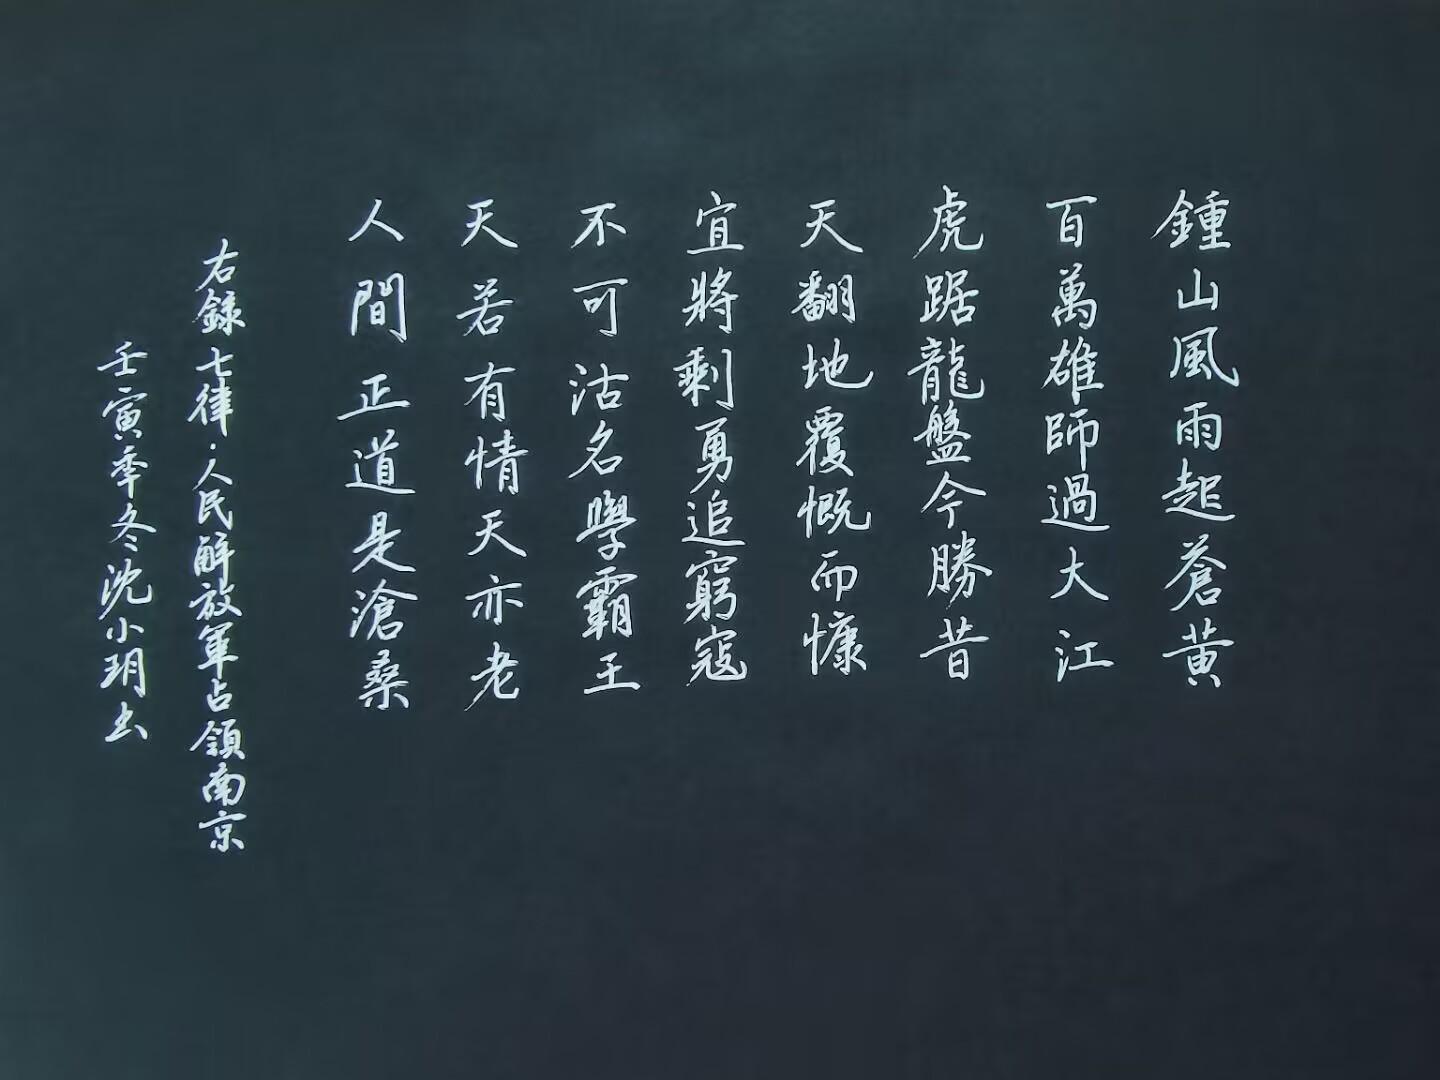 鍾山風雨起蒼黃
百萬雄師過大江
虎踞龍盤今勝昔
天翻地覆慨而慷
宜將剩勇追窮寇
不可沽名學霸王
天若有情天亦老
人間正道是滄桑
右録七律·人民解放軍占領南京
壬寅季冬沈小玥书